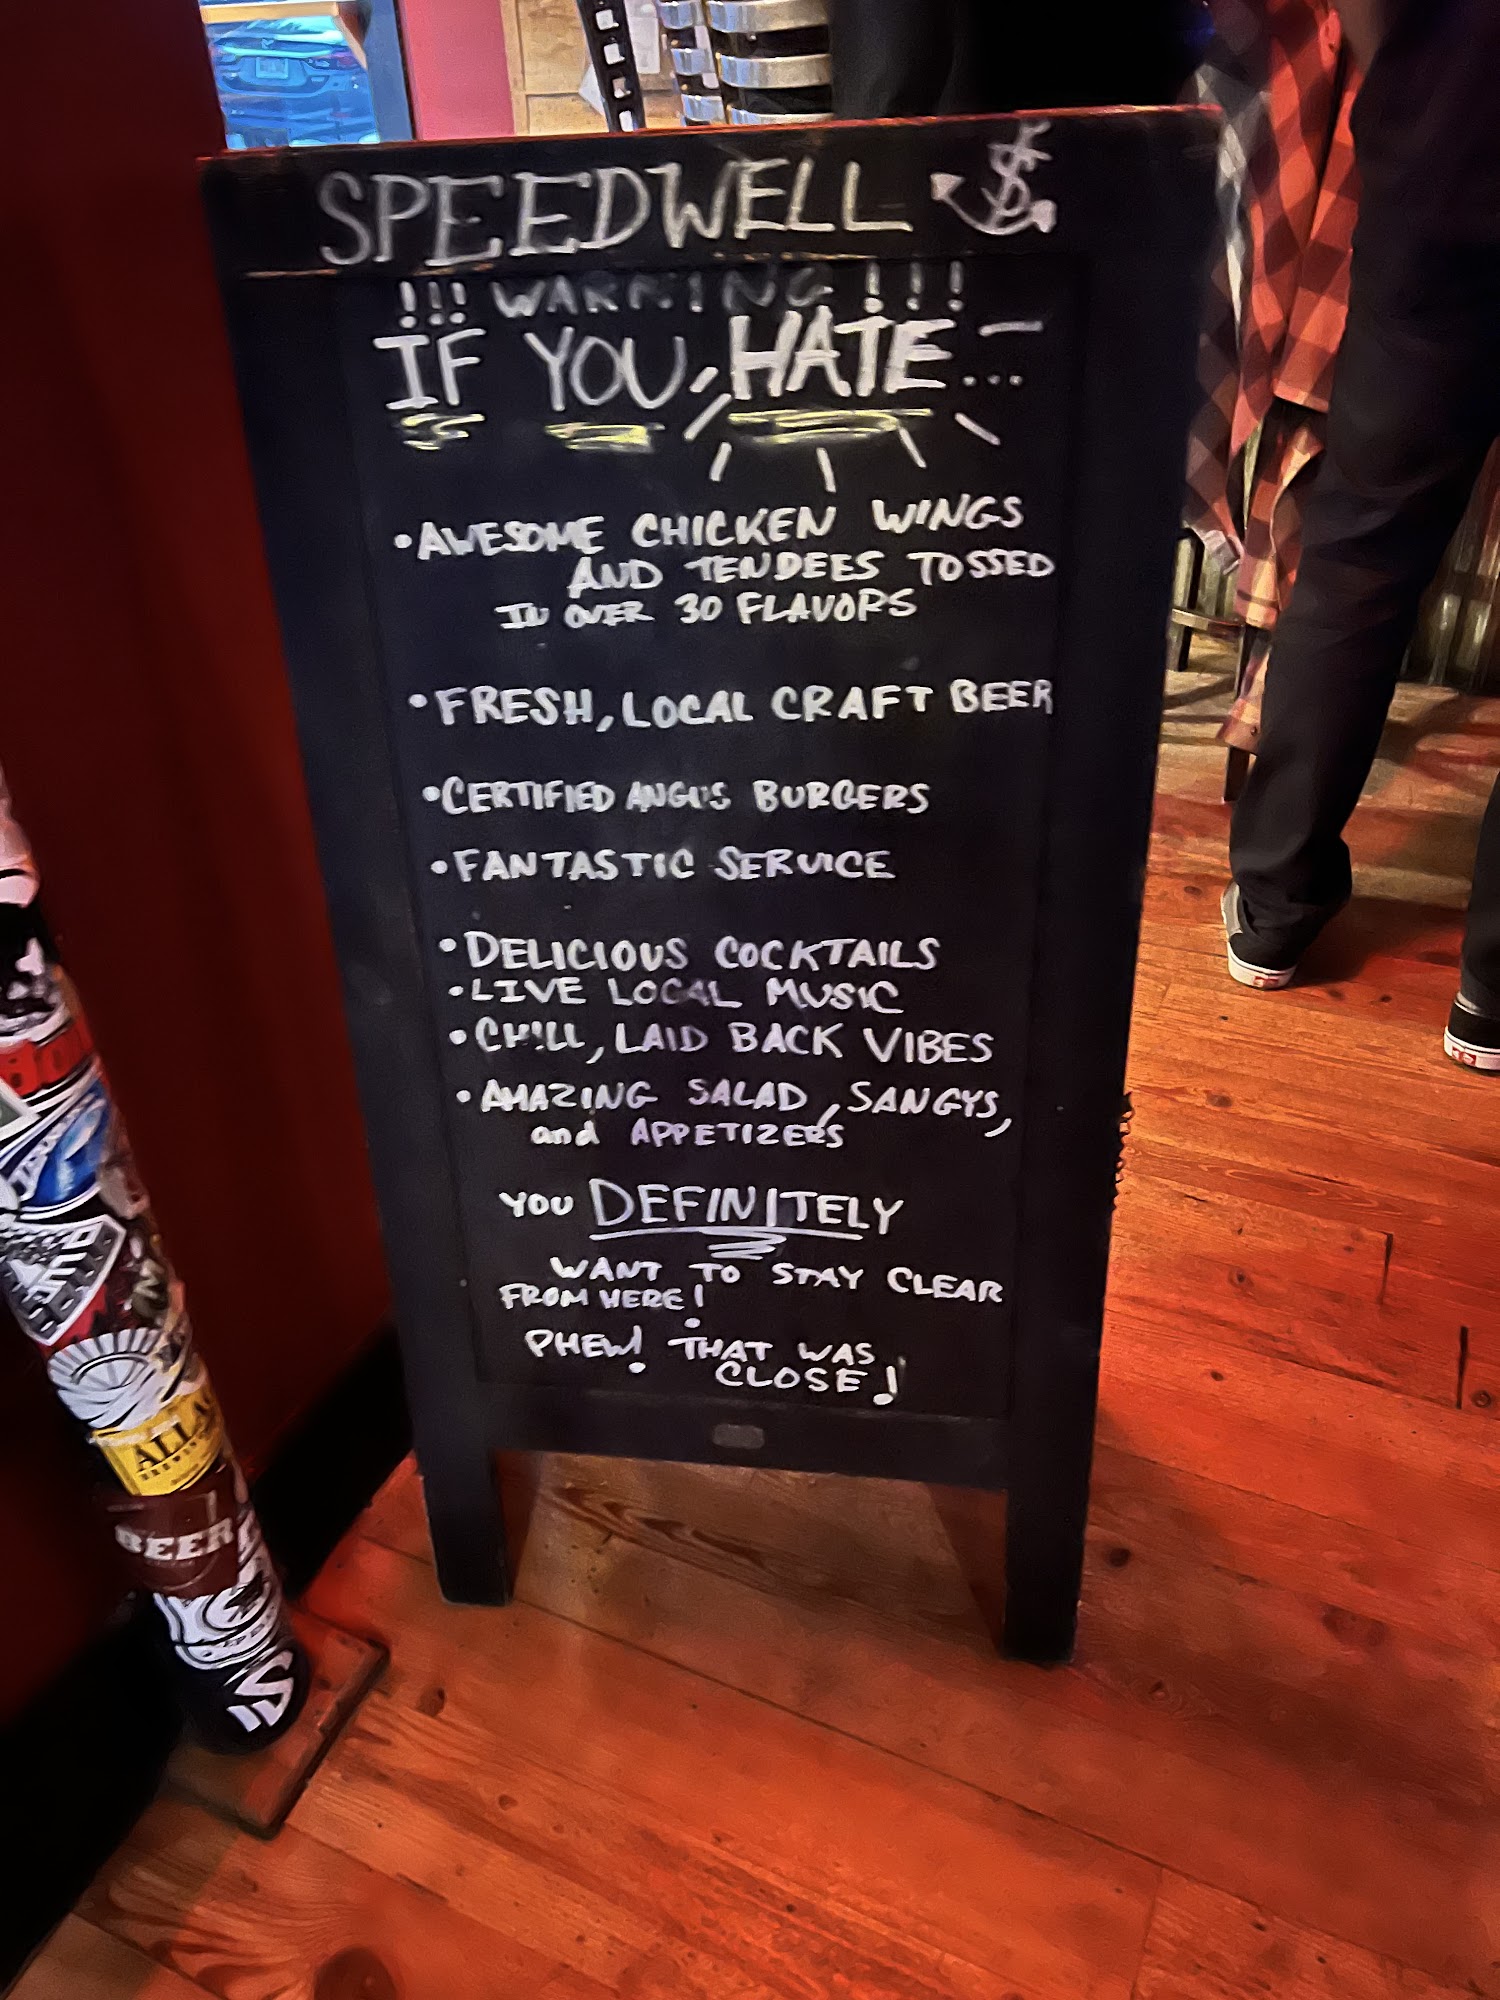 SPEEDWELL
!!! WARNING !!!
IF YOU HATE...
• AWESOME CHICKEN WINGS
AND TENDEES TOSSED
IN OVER 30 FLAVORS
• FRESH, LOCAL CRAFT BEER
• CERTIFIED ANGUS BURGERS
• FANTASTIC SERVICE
• DELICIOUS COCKTAILS
• LIVE LOCAL MUSIC
• CHILL, LAID BACK VIBES
• AMAZING SALAD, SANGYS,
and APPETIZERS
YOU DEFINITELY
WANT TO STAY CLEAR
FROM HERE!
PHEW! THAT WAS
CLOSE!
BEER